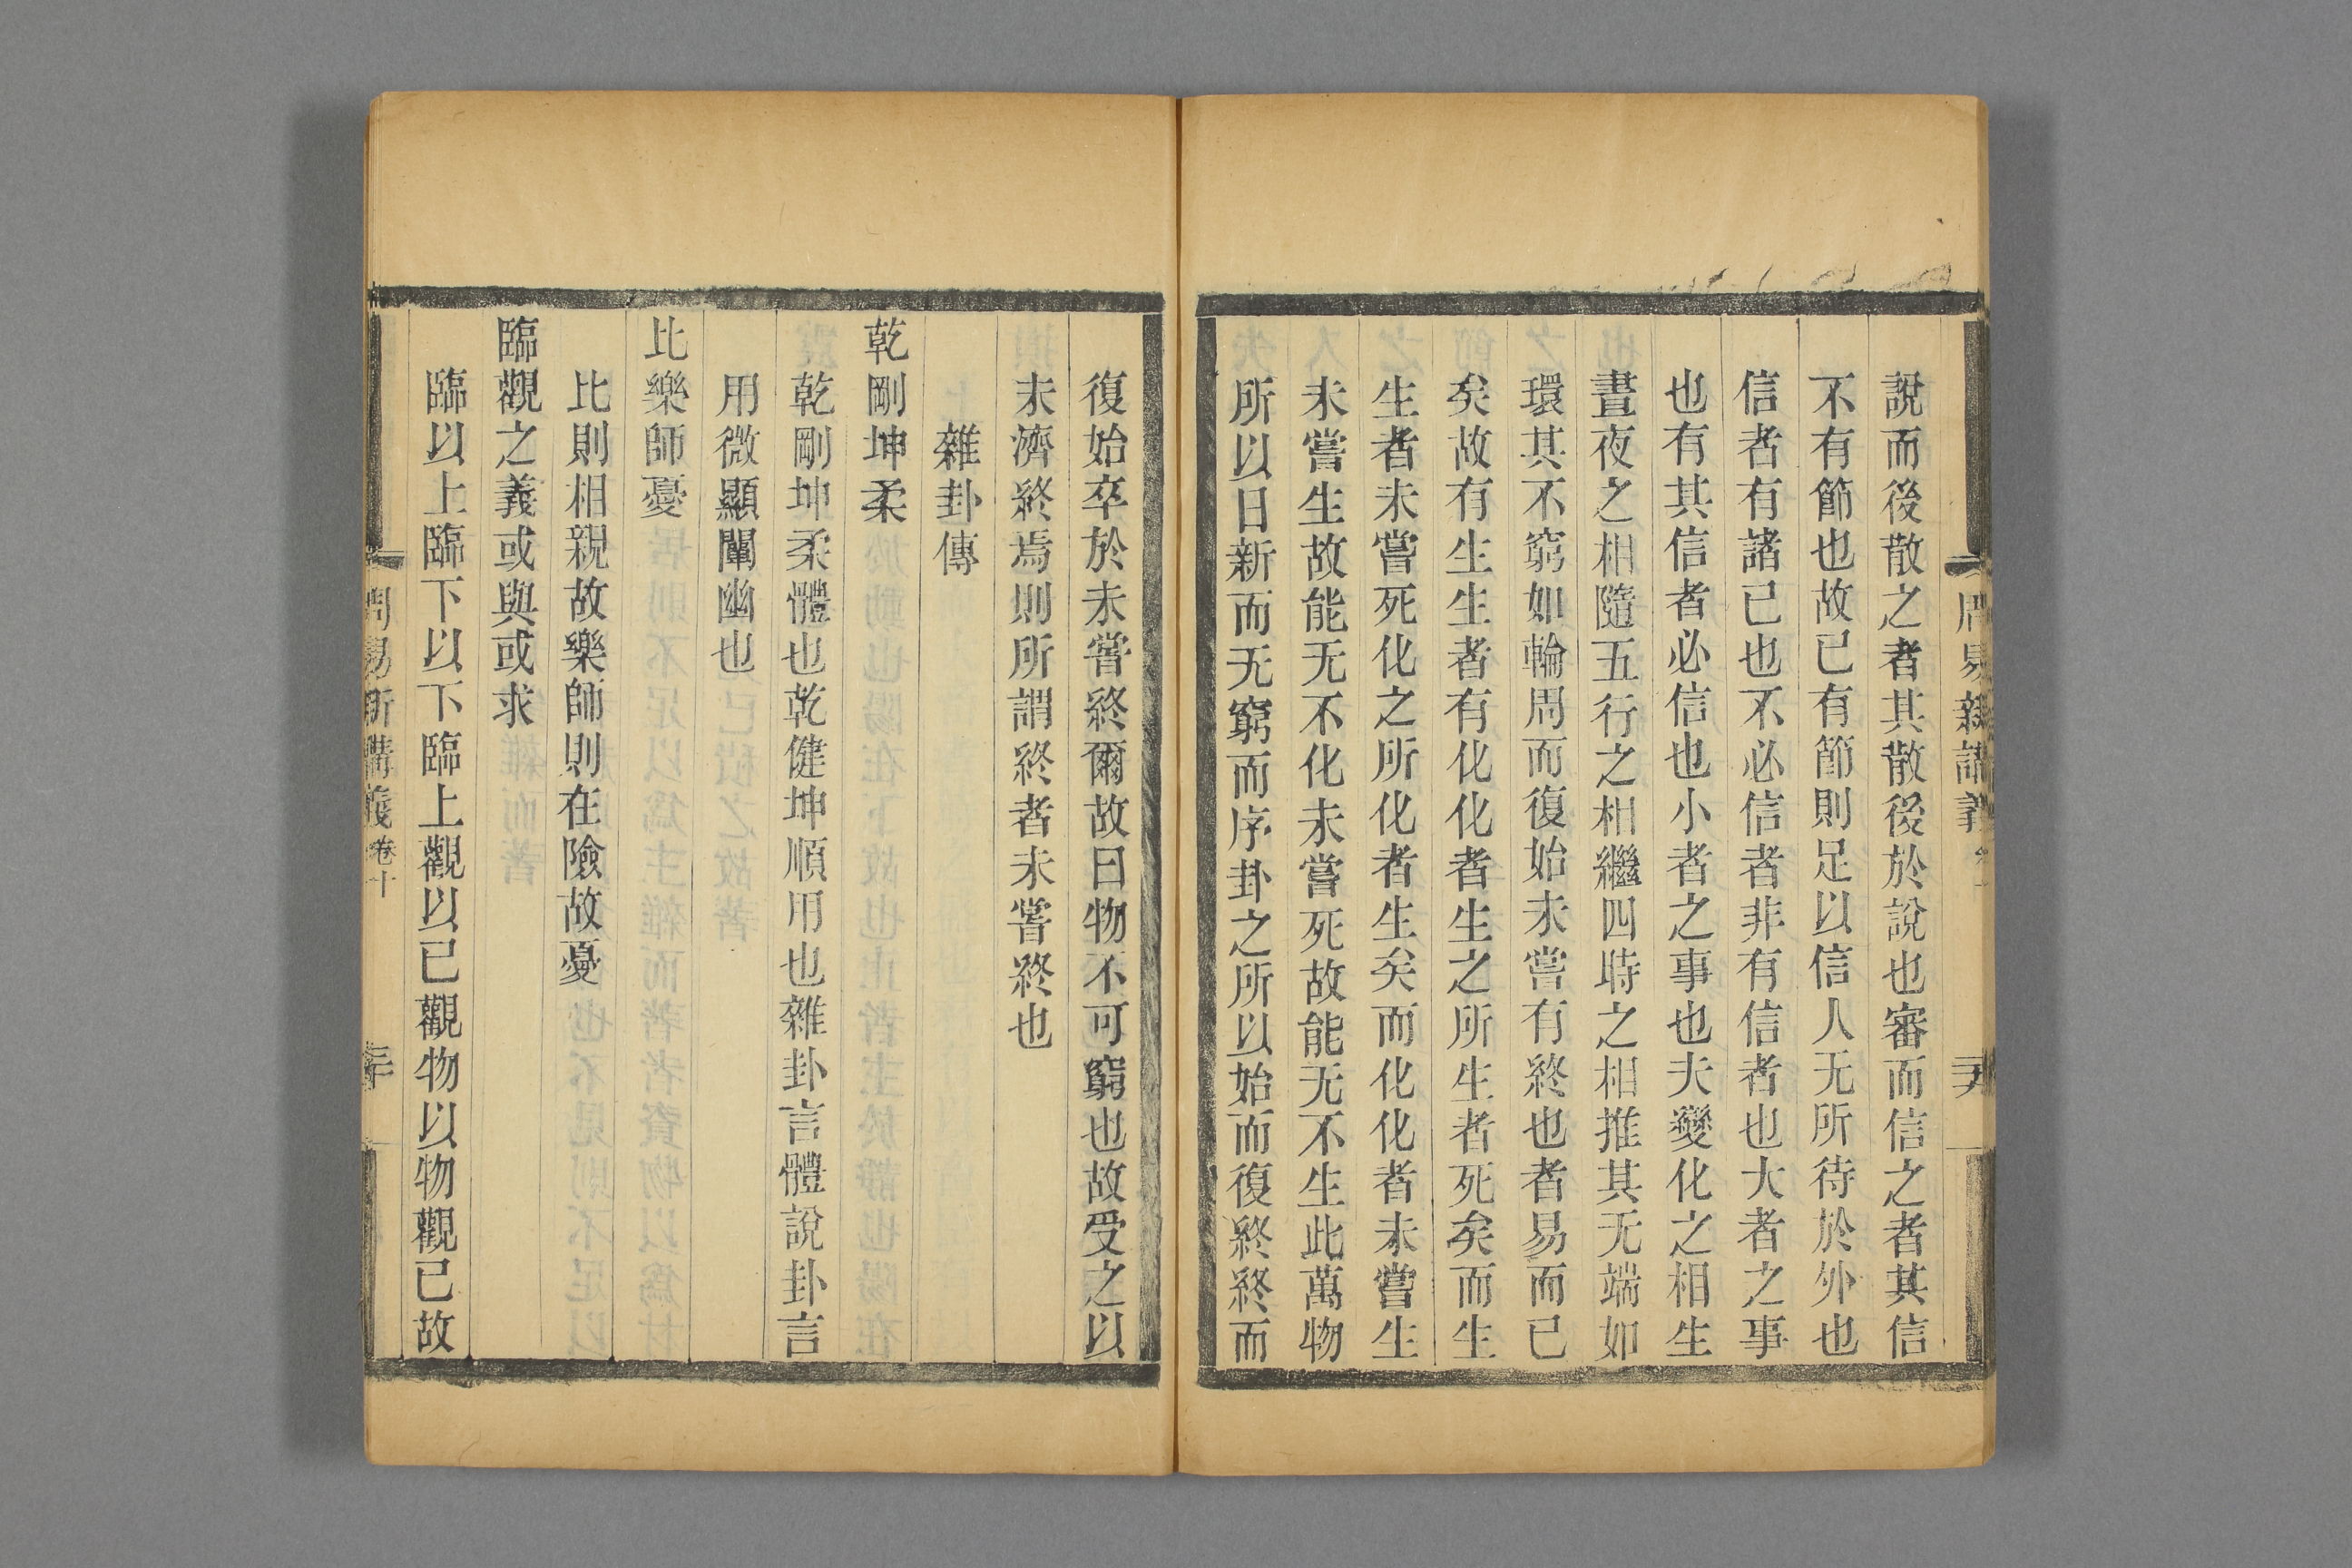 說而後散之者其散後於說也審而信之者其信
不有節也故已有節則足以信人无所待於外也
信者有諸已也不必信者非有信者也大者之事
也有其信者必信也小者之事也夫變化之相生
晝夜之相隨五行之相繼四時之相推其无端如
環其不窮如輪周而復始未嘗有終也者易而已
矣故有生生者有化化者生之所生者死矣而生
生者未嘗死化之所化者生矣而化化者未嘗生
未嘗生故能无不化未嘗死故能无不生此萬物
所以日新而无窮而序卦之所以始而復終終而
復始卒於未嘗終爾故曰物不可窮也故受之以
未濟終焉則所謂終者未嘗終也
雜卦傳
乾剛坤柔
乾剛坤柔體也乾健坤順用也雜卦言體說卦言
用微顯闡幽也
比樂師憂
比則相親故樂師則在險故憂
臨觀之義或與或求
臨以上臨下以下臨上觀以已觀物以物觀已故
周易新講義 卷十